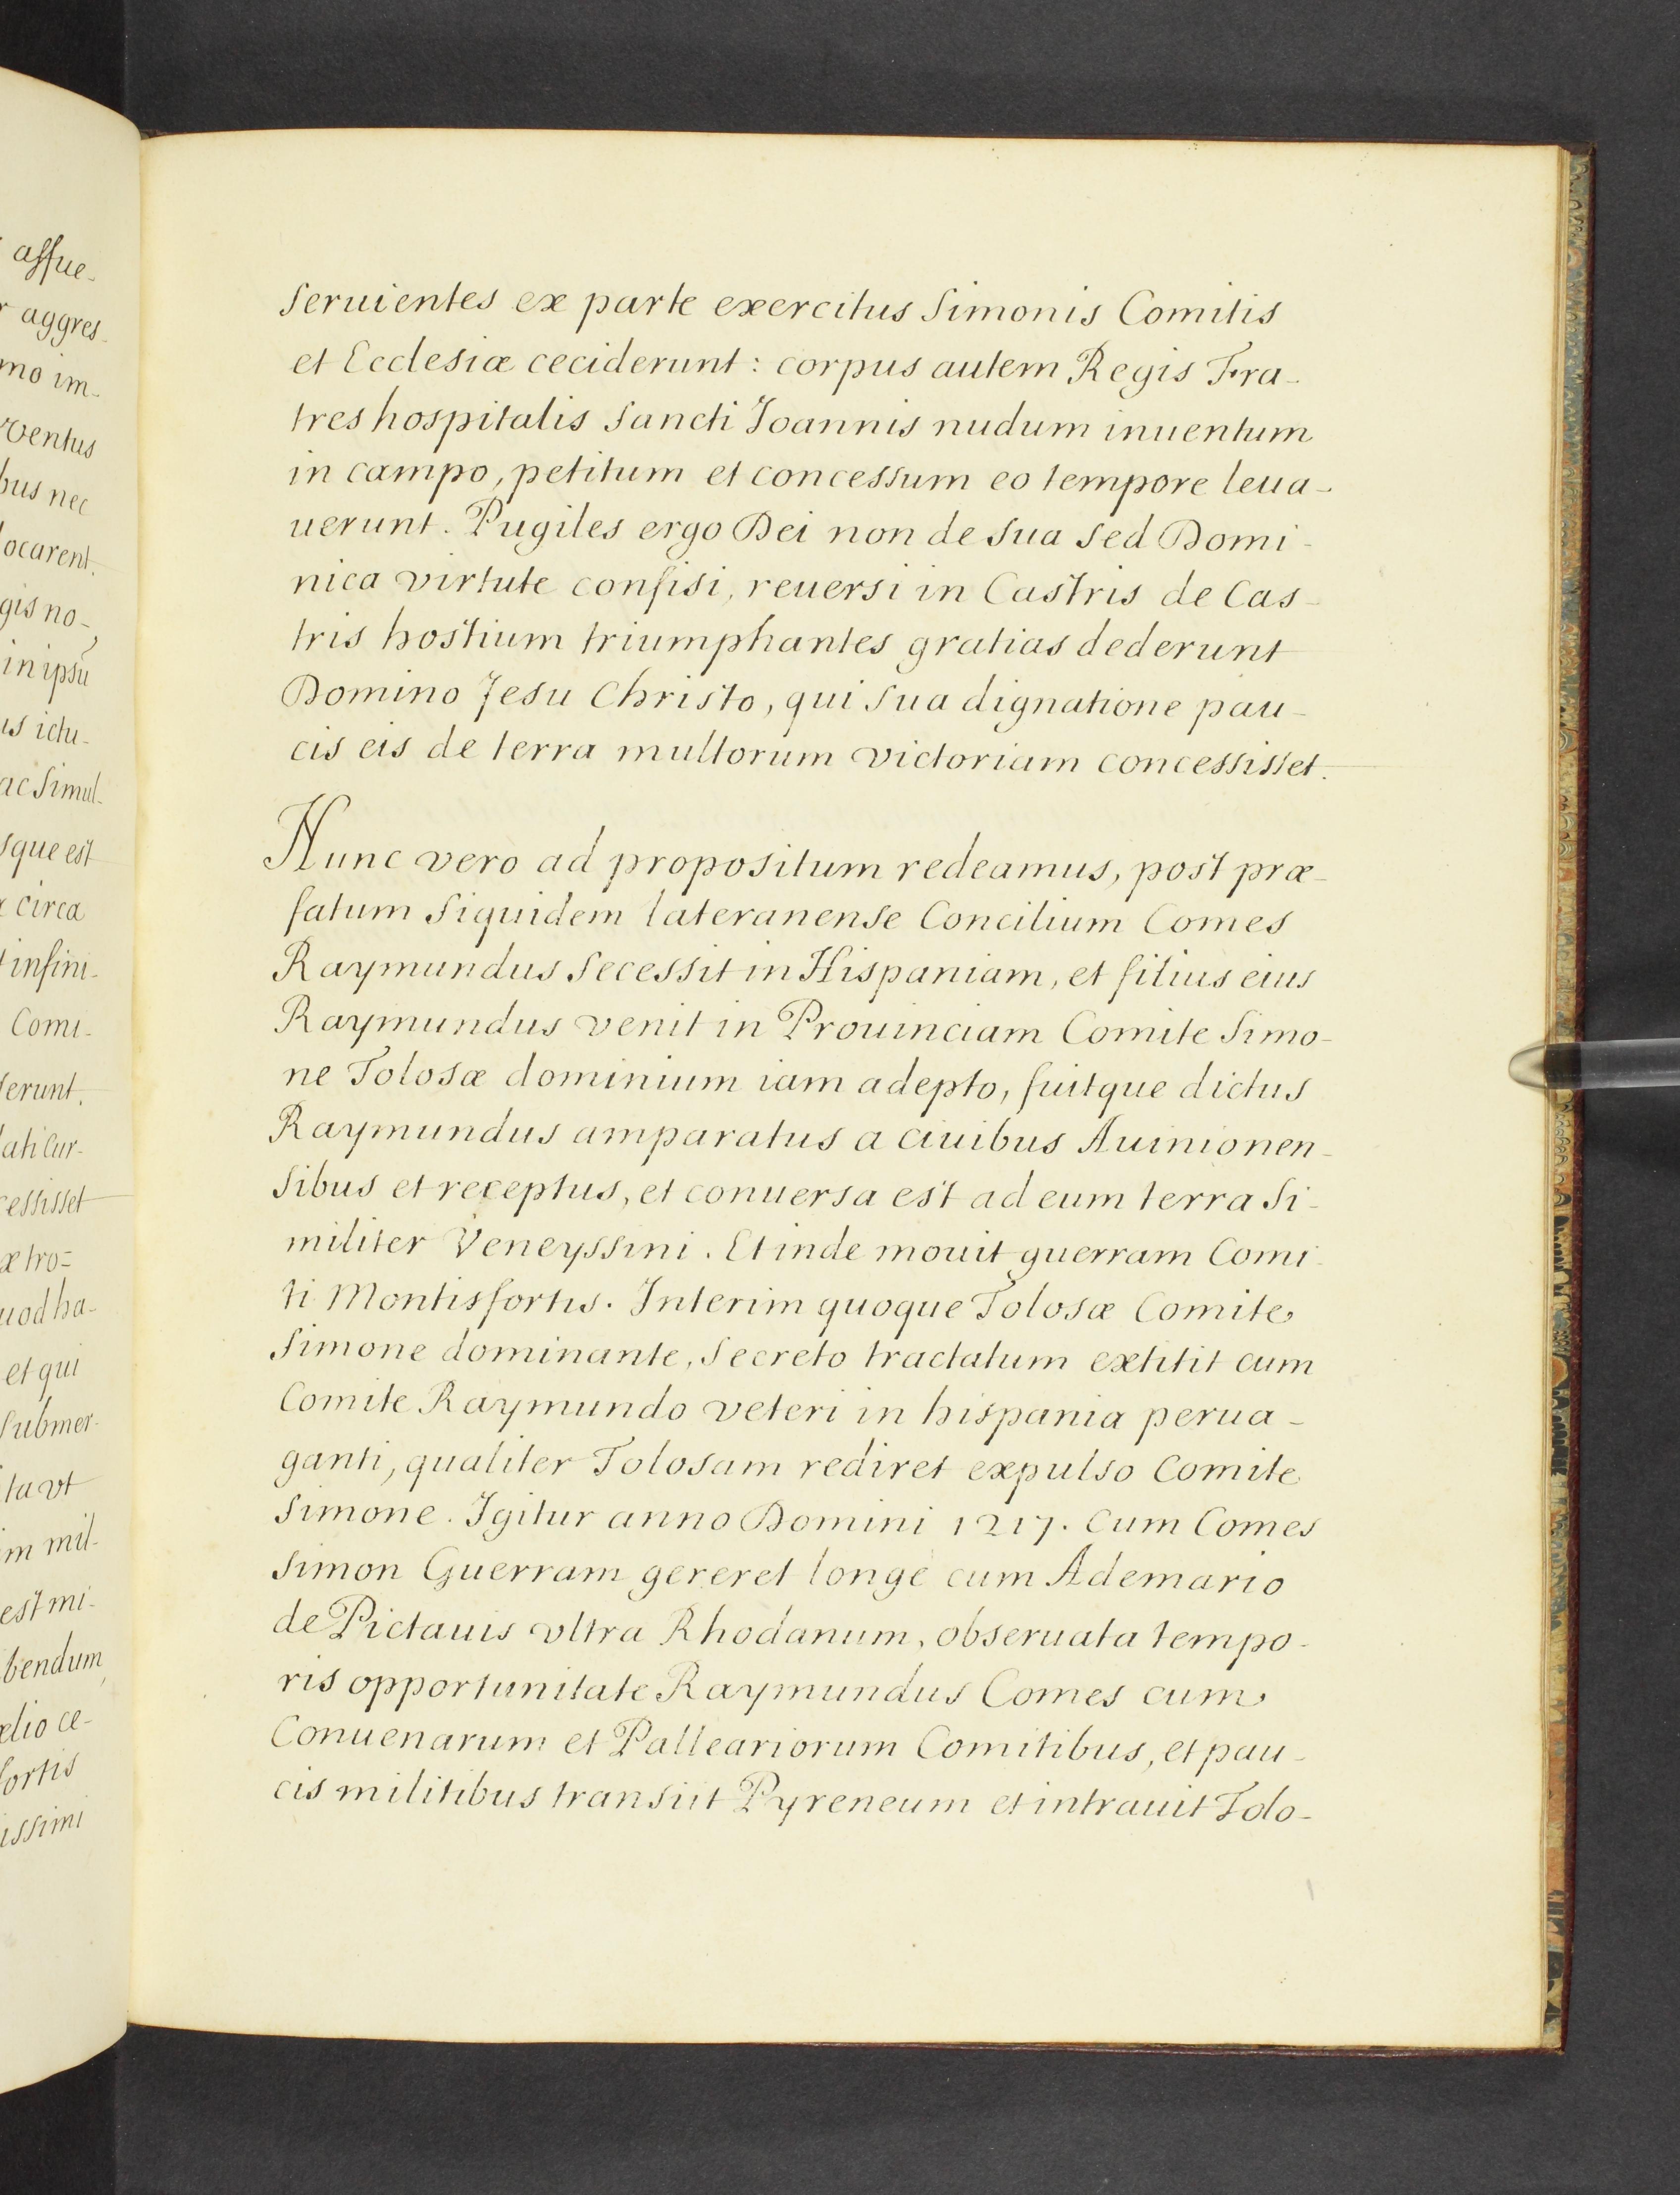 seruientes ex parte exercitus Simonis Comitis
et Ecclesiæ ceciderunt: corpus autem Regis Fra-
tres hospitalis Sancti Joannis nudum inuentum
in campo, petitum et concessum eo tempore leua-
uerunt. Pugiles ergo Dei non de sua sed Domi-
nica virtute confisi, reuersi in Castris de Cas-
tris hostium triumphantes gratias dederunt
Domino Jesu Christo, qui sua dignatione pau-
cis eis de terra multorum victoriam concessisset.
Nunc vero ad propositum redeamus, post præ-
fatum siquidem lateranense Concilium Comes
Raymundus secessit in Hispaniam, et filius eius
Raymundus venit in Prouinciam Comite Simo-
ne Tolosæ dominium iam adepto, fuitque dictus
Raymundus amparatus a ciuibus Auinionen-
sibus et receptus, et conuersa est ad eum terra si-
militer Veneyssini. Et inde mouit guerram Comi-
ti Montisfortis. Interim quoque Tolosæ Comite
Simone dominante, secreto tractatum extitit cum
Comite Raymundo veteri in hispania perua-
ganti, qualiter Tolosam rediret expulso Comite
Simone. Igitur anno Domini 1217. cum Comes
Simon Guerram gereret longe cum Ademario
de Pictauis vltra Rhodanum, obseruata tempo-
ris opportunitate Raymundus Comes cum
Conuenarum et Palleariorum Comitibus, et pau-
cis militibus transiit Pyreneum et intrauit Tolo-
assue-
aggres-
mo im-
ventus
bus nec
ocarent.
gis no-
in ipsũ
us ictu-
ac simul-
sque est
circa
infini-
Comi-
serunt.
ati Cur-
cessisset
æ tro=
uod ha-
et qui
submer-
ta vt
im mil-
est mi-
bendum,
elio ce-
fortis
issimi